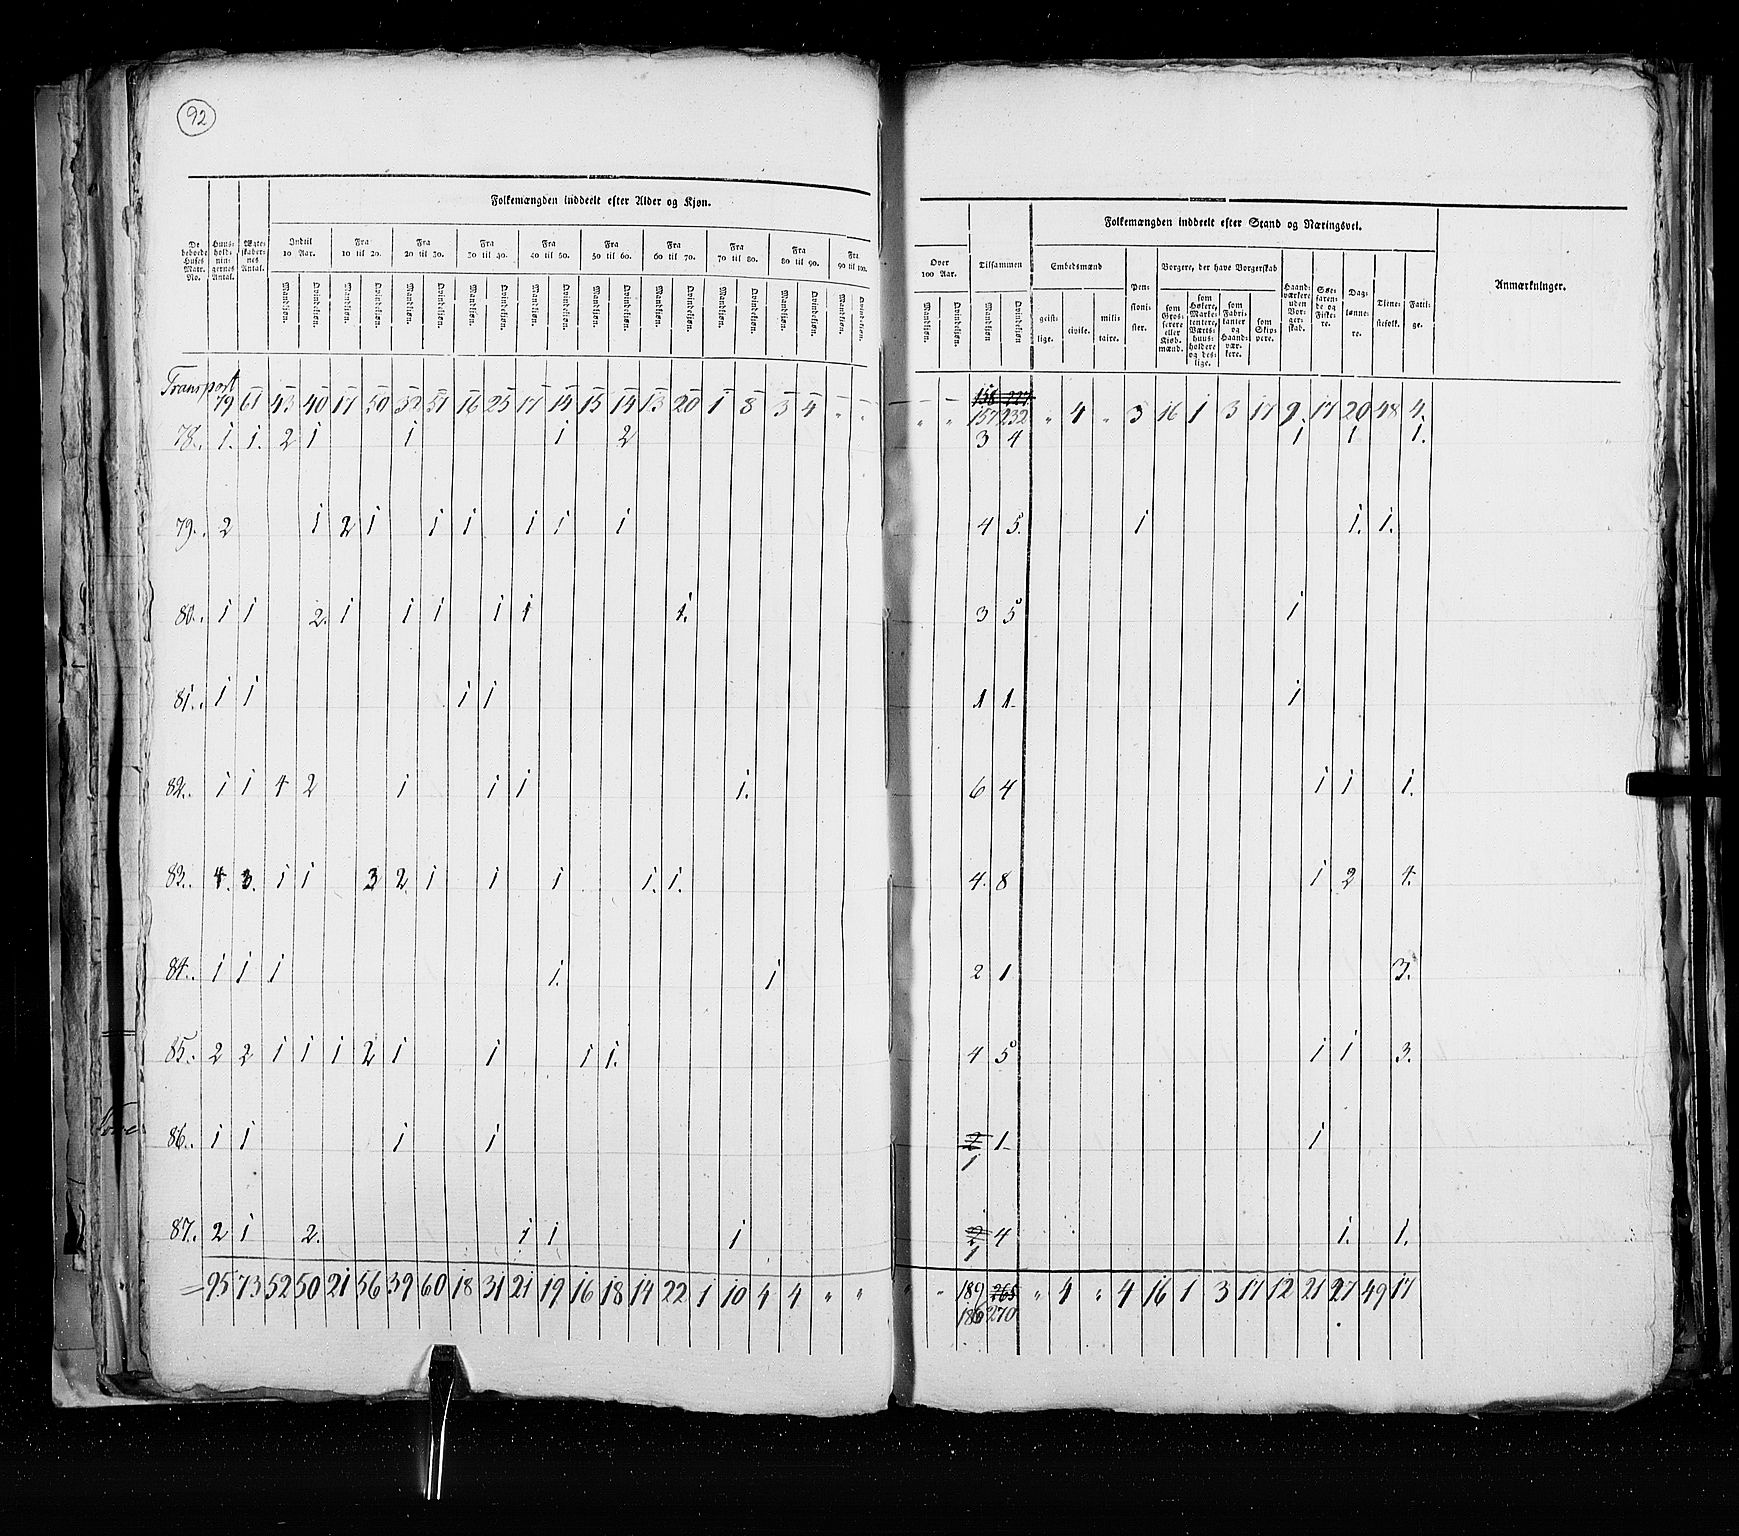 92
Folkemængden inddeelt efter Alder og Kjøn.
De beboede Huses Matr. No.
Huus-hold-nin-gernes Antal.
Ægte-skaber-nes Antal.
Indtil 10 Aar.
Fra 10 til 20.
Fra 20 til 30.
Fra 30 til 40.
Fra 40 til 50.
Fra 50 til 60.
Fra 60 til 70.
Fra 70 til 80.
Fra 80 til 90.
Fra 90 til 100.
Mandkjøn. Qvindekjøn. Mandkjøn. Qvindekjøn. Mandkjøn. Qvindekjøn. Mandkjøn. Qvindekjøn. Mandkjøn. Qvindekjøn. Mandkjøn. Qvindekjøn. Mandkjøn. Qvindekjøn. Mandkjøn. Qvindekjøn. Mandkjøn. Qvindekjøn. Mandkjøn. Qvindekjøn.
Over 100 Aar.
Mandkjøn. Qvindekjøn.
Tilsammen
Mandkjøn Qvindekjøn
Folkemængden inddeelt efter Stand og Næringsvei.
Embedsmænd
geist-lige. civile. mili-taire.
Pen-sioni-ster.
Borgere, der have Borgerskab
som Gros-serere eller Kiøb-mænd.
som Høkere, Marke-tentere, Værts-huus-holdere og des-lige.
som Fabri-kanter og Haand-vær-kere.
som Skip-pere.
Haand-værkere uden Bor-ger-skab.
Søe-farende og Fiske-re.
Dag-lønne-re.
Tiene-stefolk.
Fatti-ge.
Anmærkninger.
Transport
79 61 43 40 17 50 32 51 16 25 17 14 15 14 13 20 1 8 3 4 " " " " 157 232 " 4 " 3 16 1 3 17 9 17 20 48 4.
78. 1. 1. 2 1 1 1 2 3 4 1 1. 1.
79. 2 1 2 1 1 1 1 1 1 4 5. 1 1. 1.
80. 1 1 2. 1 1 1 1 1 1. 3 5 1
81. 1 1 1 1 1 1 1
82. 1 1 4 2 1 1 1 1. 6 4 1 1 1.
83. 4. 3. 1 1 3 2 1 1 1 1. 1. 4. 8 1 2 4.
84. 1 1 1 1. 1 2 1 3.
85. 2 2 1 1 1 2 1 1 1 1. 4 5 1 1 3.
86. 1 1 1 1 2 1 1
1
87. 2 1 2. 1 1 1 2 4 1. 1.
1
= 95 73 52 50 21 56 39 60 18 31 21 19 16 18 14 22 1 10 4 4 " " " " 189 265 " 4 " 4 16 1 3 17 12 21 27 49 17
186 270